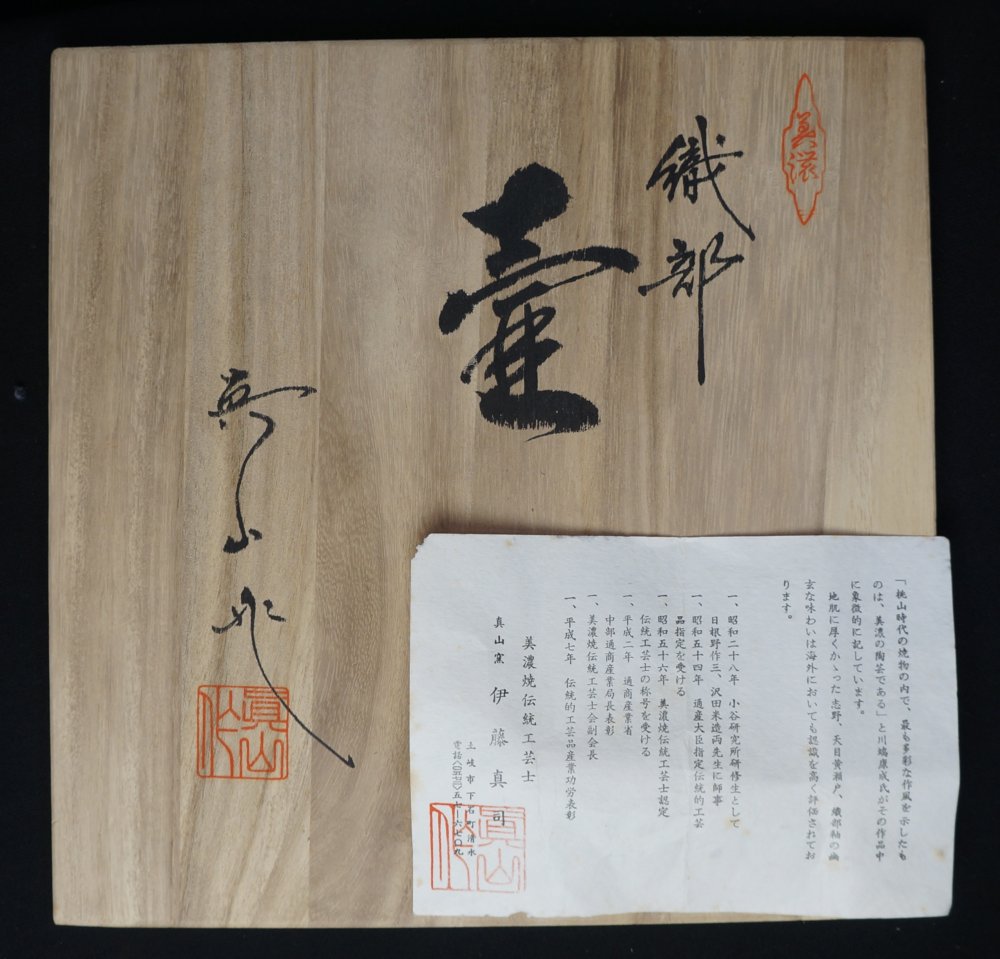 美濃
織部
壷
真山作
眞山作
「桃山時代の焼物の内で、最も多彩な作風を示したも
のは、美濃の陶芸である」と川端康成氏がその作品中
に象徴的に記しています。
地肌に厚くかゝった志野、天目黄瀬戸、織部釉の幽
玄な味わいは海外においても認識を高く評価されてお
ります。
一、昭和二十八年 小谷研究所研修生として
日根野作三、沢田米造両先生に師事
一、昭和五十四年 通産大臣指定伝統的工芸
品指定を受ける
一、昭和五十六年 美濃焼伝統工芸士認定
伝統工芸士の称号を受ける
一、平成二年 通商産業省
中部通商産業局長表彰
一、美濃焼伝統工芸士会副会長
一、平成七年 伝統的工芸品産業功労表彰
美濃焼伝統工芸士
真山窯 伊藤真司
土岐市下石町清水
電話〈〇五七二〉五七-六七〇九
眞山作